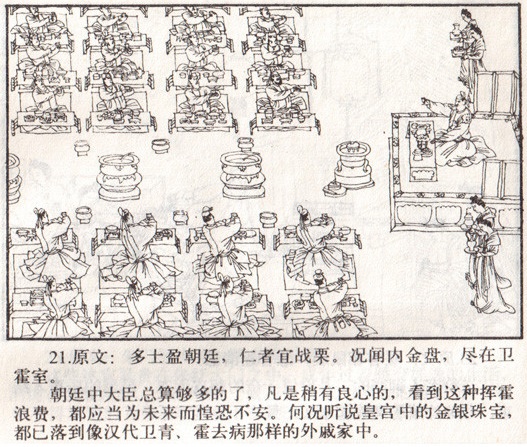 21.原文：多士盈朝廷，仁者宜战栗。况闻内金盘，尽在卫
霍室。
朝廷中大臣总算够多的了，凡是稍有良心的，看到这种挥霍
浪费，都应当为未来而惶恐不安。何况听说皇宫中的金银珠宝，
都已落到像汉代卫青、霍去病那样的外戚家中。